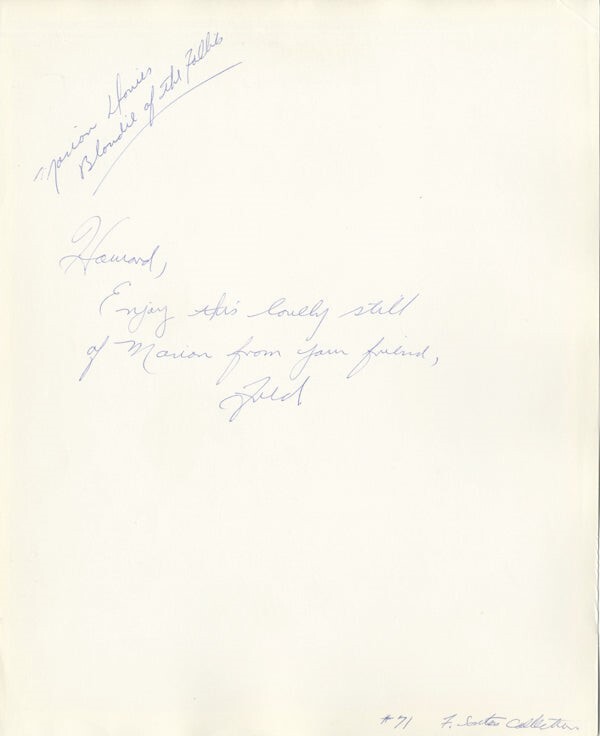 Marion Davies
Blondie of the Follies
Howard,
Enjoy this lovely still
of Marion from your friend,
Fred
#71 F. Santos Collection